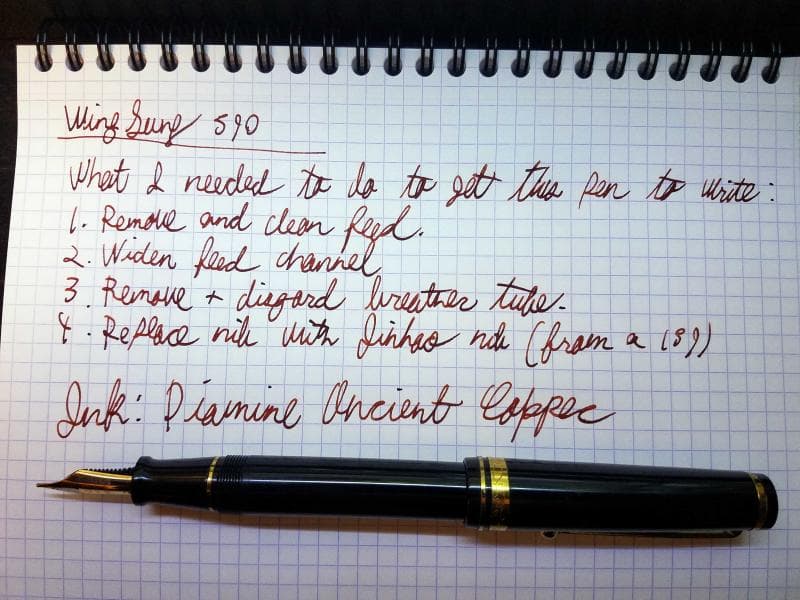 Wing Sung 590
What I needed to do to get this pen to write:
1. Remove and clean feed.
2. Widen feed channel
3. Remove + disgard breather tube.
4. Replace nib with Jinhao nib (from a 159)
Ink: Diamine Ancient Copper